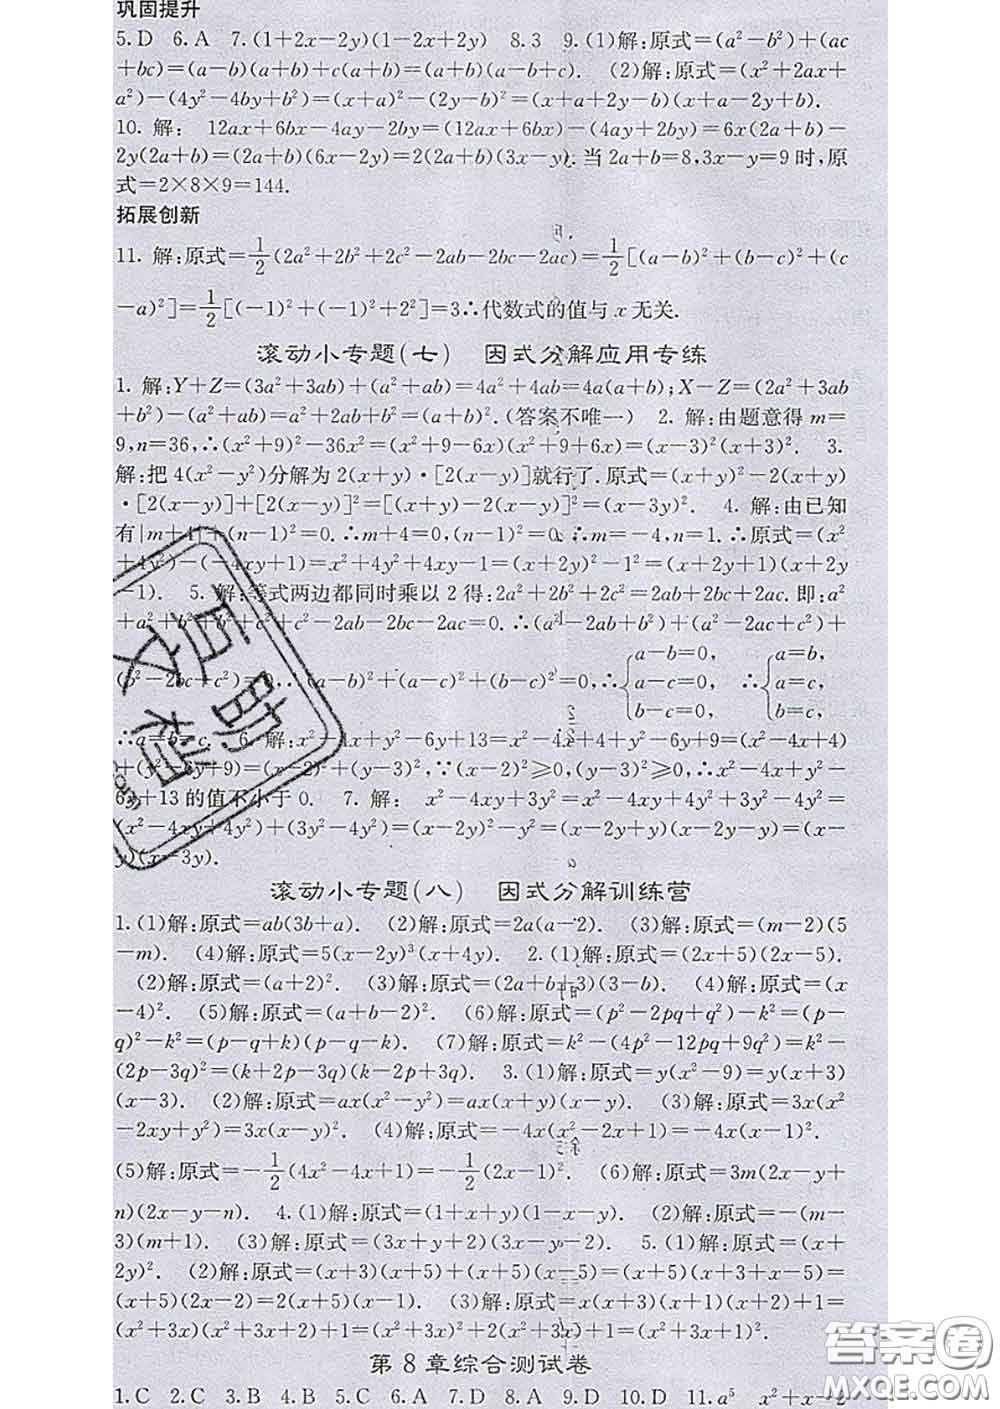 巩固提升
5.D 6.A 7.(1+2x−2y)(1−2x+2y) 8.3 9.(1)解:原式=(a²−b²)+(ac
+bc)=(a−b)(a+b)+c(a+b)=(a+b)(a−b+c). (2)解:原式=(x²+2ax+
a²)−(4y²−4by+b²)=(x+a)²−(2y−b)²=(x+a+2y−b)(x+a−2y+b).
10. 解: 12ax+6bx−4ay−2by=(12ax+6bx)−(4ay+2by)=6x(2a+b)−
2y(2a+b)=(2a+b)(6x−2y)=2(2a+b)(3x−y). 当2a+b=8,3x−y=9时,原
式=2×8×9=144.
拓展创新
11. 解:原式=1/2(2a²+2b²+2c²−2ab−2bc−2ac)=1/2[(a−b)²+(b−c)²+(c
−a)²]=1/2[(−1)²+(−1)²+2²]=3∴代数式的值与x无关.
滚动小专题(七) 因式分解应用专练
1. 解:Y+Z=(3a²+3ab)+(a²+ab)=4a²+4ab=4a(a+b);X−Z=(2a²+3ab
+b²)−(a²+ab)=a²+2ab+b²=(a+b)².(答案不唯一) 2. 解:由题意得m=
9,n=36,∴(x²+9)²−36x²=(x²+9−6x)(x²+9+6x)=(x−3)²(x+3)². 3.
解:把4(x²−y²)分解为2(x+y)·[2(x−y)]就行了.原式=(x+y)²−2(x+y)
·[2(x−y)]+[2(x−y)]²=[(x+y)−2(x−y)]²=(3x−y)². 4. 解:由已知
有|m+4|+(n−1)²=0.∴m+4=0,(n−1)²=0.∴m=−4,n=1.∴原式=(x²
+4y²)−(−4xy+1)=x²+4y²+4xy−1=(x+2y)²−1²=(x+2y+1)(x+2y
−1). 5. 解:等式两边都同时乘以2得:2a²+2b²+2c²=2ab+2bc+2ac.即:a²
+a²+b²+b²+c²+c²−2ab−2bc−2ac=0.∴(a²−2ab+b²)+(a²−2ac+c²)+
(b²−2bc+c²)=0.∴(a−b)²+(a−c)²+(b−c)²=0,∴{a−b=0, a−c=0, b−c=0, ∴{a=b, a=c, b=c,
∴a=b=c. 6. 解:x²−4x+y²−6y+13=x²−4x+4+y²−6y+9=(x²−4x+4)
+(y²−6y+9)=(x−2)²+(y−3)²,∵(x−2)²≥0,(y−3)²≥0,∴x²−4x+y²−
6y+13的值不小于0. 7. 解: x²−4xy+3y²=x²−4xy+4y²+3y²−4y²=
(x²−4xy+4y²)+(3y²−4y²)=(x−2y)²−y²=(x−2y+y)(x−2y−y)=(x−
y)(x−3y).
滚动小专题(八) 因式分解训练营
1.(1)解:原式=ab(3b+a). (2)解:原式=2a(a−2). (3)解:原式=(m−2)(5
−m). (4)解:原式=5(x−2y)³(x+4y). 2.(1)解:原式=(2x+5)(2x−5).
(2)解:原式=(a+2)². (3)解:原式=(2a+b+3)(3−b). (4)解:原式=(x
−4)². (5)解:原式=(a+b−2)². (6)解:原式=(p²−2pq+q²)−k²=(p−
q)²−k²=(p−q+k)(p−q−k). (7)解:原式=k²−(4p²−12pq+9q²)=k²−
(2p−3q)²=(k+2p−3q)(k−2p+3q). 3.(1)解:原式=y(x²−9)=y(x+3)
(x−3). (2)解:原式=ax(x²−y²)=ax(x+y)(x−y). (3)解:原式=3x(x²
−2xy+y²)=3x(x−y)². (4)解:原式=−4x(x²−2x+1)=−4x(x−1)².
(5)解:原式=−1/2(4x²−4x+1)=−1/2(2x−1)². (6)解:原式=3m(2x−y+
n)(2x−y−n). 4.(1)解:原式=(1+x+y)(1−x−y). (2)解:原式=−(m−
3)(m+1). (3)解:原式=(3x+y+2)(3x−y−2). 5.(1)解:原式=(x+
2y)². (2)解:原式=(x+3)(x+5)+(x+5)(x−5)=(x+5)(x+3+x−5)=
(x+5)(2x−2)=2(x+5)(x−1). (3)解:原式=x(x+3)(x+1)(x+2)+1=
(x²+3x)(x²+3x+2)+1=(x²+3x)²+2(x²+3x)+1=(x²+3x+1)².
第8章综合测试卷
1.C 2.C 3.B 4.B 5.C 6.A 7.D 8.A 9.D 10.D 11.a⁵ x²+x−2
百助文档
答案圈
MXQE.COM